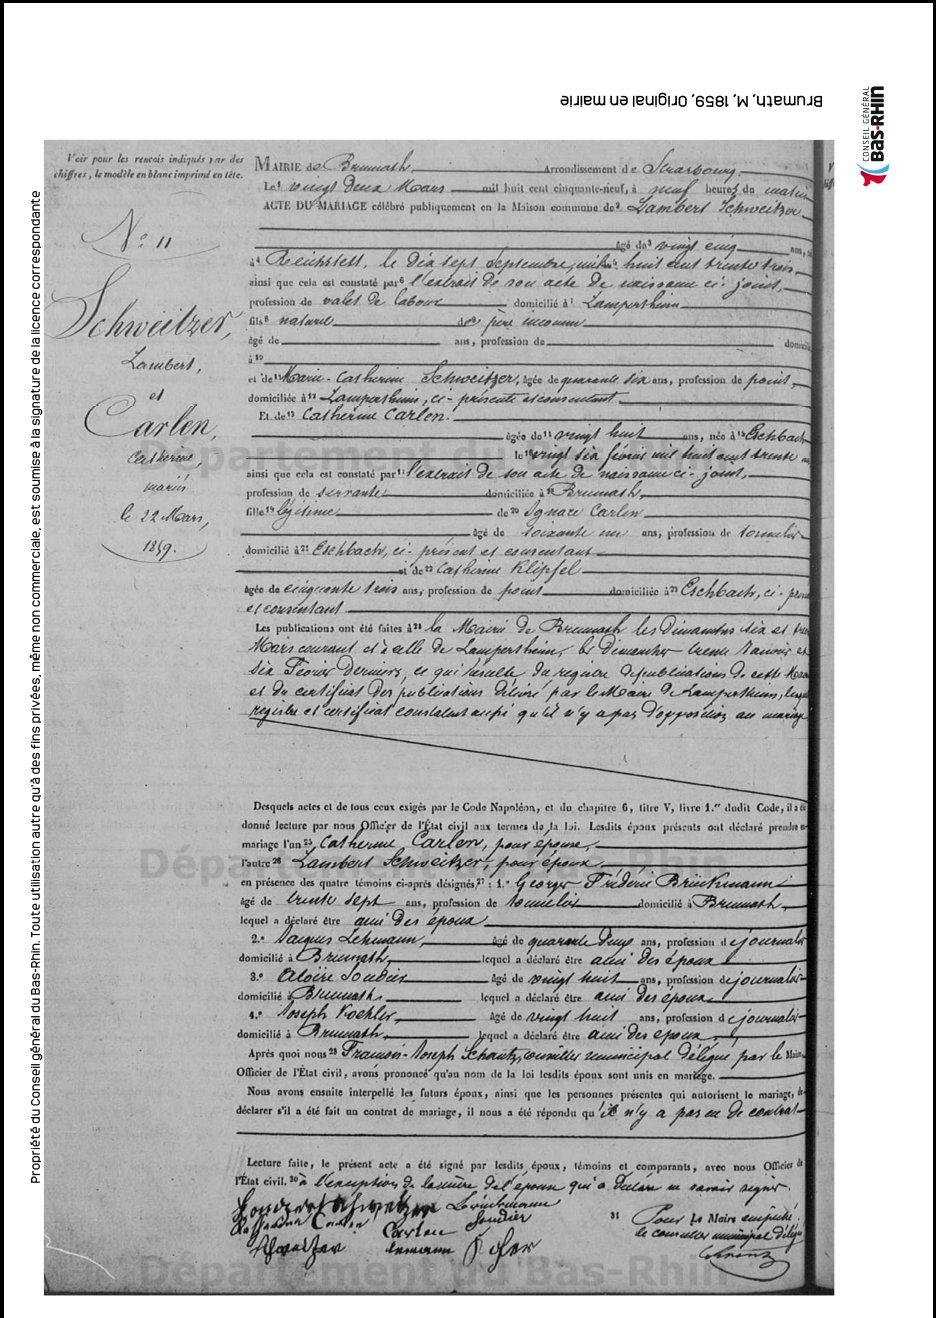 Brumath, M, 1859, Original en mairie
CONSEIL GÉNÉRAL
BAS-RHIN
Propriété du Conseil général du Bas-Rhin. Toute utilisation autre qu'à des fins privées, même non commerciale, est soumise à la signature de la licence correspondante
Voir pour les renvois indiqués par des
chiffres, le modèle en blanc imprimé en tête.
N.° 11
Schweitzer,
Lambert,
et
Carlen,
Catherine,
mariés
le 22 Mars,
1859.
MAIRIE de Brumath, Arrondissement de Strasbourg.
Le¹ vingt deux Mars mil huit cent cinquante-neuf, à neuf heures du matin
ACTE DU MARIAGE célébré publiquement en la Maison commune de² Lambert Schweitzer
âgé de³ vingt cinq ans,
à⁴ Reichstett, le dix sept Septembre, mil huit cent trente trois,
ainsi que cela est constaté par⁶ l'extrait de son acte de naissance ci-joint,
profession de valet de labour domicilié à⁷ Lampertheim
fils⁸ naturel de⁹ père inconnu
âgé de ans, profession de domicilié
à¹⁰
et de¹¹ Marie-Catherine Schweitzer, âgée de quarante six ans, profession de point,
domiciliée à¹² Lampertheim, ci-présente et consentant
Et de¹³ Catherine Carlen.
âgée de¹⁴ vingt huit ans, née à¹⁵ Eschbach
le¹⁶ vingt six février mil huit cent trente
ainsi que cela est constaté par¹⁷ l'extrait de son acte de naissance ci-joint,
profession de servante domiciliée à¹⁸ Brumath,
fille¹⁹ légitime de²⁰ Ignace Carlen
âgé de soixante un ans, profession de tonnelier
domicilié à²¹ Eschbach, ci-présent et consentant
et de²² Catherine Klipfel
âgée de cinquante trois ans, profession de point domiciliée à²³ Eschbach, ci-
et consentant
Les publications ont été faites à²⁴ la Mairie de Brumath les Dimanches six et
Mars courant et à celle de Lampertheim, les dimanches trente Janvier et
six Février derniers, ce qui résulte du registre de publications de cette
et du certificat des publications délivré par le Maire de Lampertheim,
registre et certificat constatent qu'il n'y a pas d'opposition au mariage
Desquels actes et de tous ceux exigés par le Code Napoléon, et du chapitre 6, titre V, livre 1.er dudit Code, il a été
donné lecture par nous Officier de l'État civil aux termes de la loi. Lesdits époux présents ont déclaré prendre en
mariage l'un²⁵, Catherine Carlen, pour épouse,
l'autre²⁶ Lambert Schweitzer, pour époux
en présence des quatre témoins ci-après désignés²⁷ : 1.° Georges Frédéric Brückmann
âgé de trente sept ans, profession de tonnelier domicilié à Brumath,
lequel a déclaré être ami des époux
2.° Jacques Lehmann, âgé de quarante deux ans, profession de journalier
domicilié à Brumath, lequel a déclaré être ami des époux
3.° Aloïse Soudier âgé de vingt huit ans, profession de journalier
domicilié à Brumath, lequel a déclaré être ami des époux
4.° Joseph Koehler, âgé de vingt huit ans, profession de journalier
domicilié à Brumath, lequel a déclaré être ami des époux.
Après quoi nous²⁸ François-Joseph Schantz, conseiller municipal délégué par le Maire
Officier de l'État civil, avons prononcé qu'au nom de la loi lesdits époux sont unis en mariage.
Nous avons ensuite interpellé les futurs époux, ainsi que les personnes présentes qui autorisent le mariage, de
déclarer s'il a été fait un contrat de mariage, il nous a été répondu qu'il n'y a pas eu de contrat
Lecture faite, le présent acte a été signé par lesdits époux, témoins et comparants, avec nous Officier de
l'État civil.³⁰ à l'exception de la mère de l'épouse qui a déclaré ne savoir signer.
Brückmann
Soudier
Carlen
31 Pour Le Maire empêché
le conseiller municipal délégué
Département du Bas-Rhin
Département du Bas-Rhin
Département du Bas-Rhin